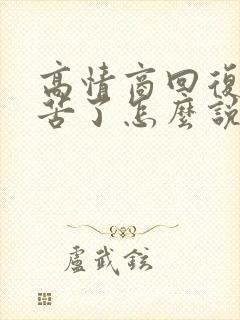 高情商回復
苦了怎麼說
盧武鉉